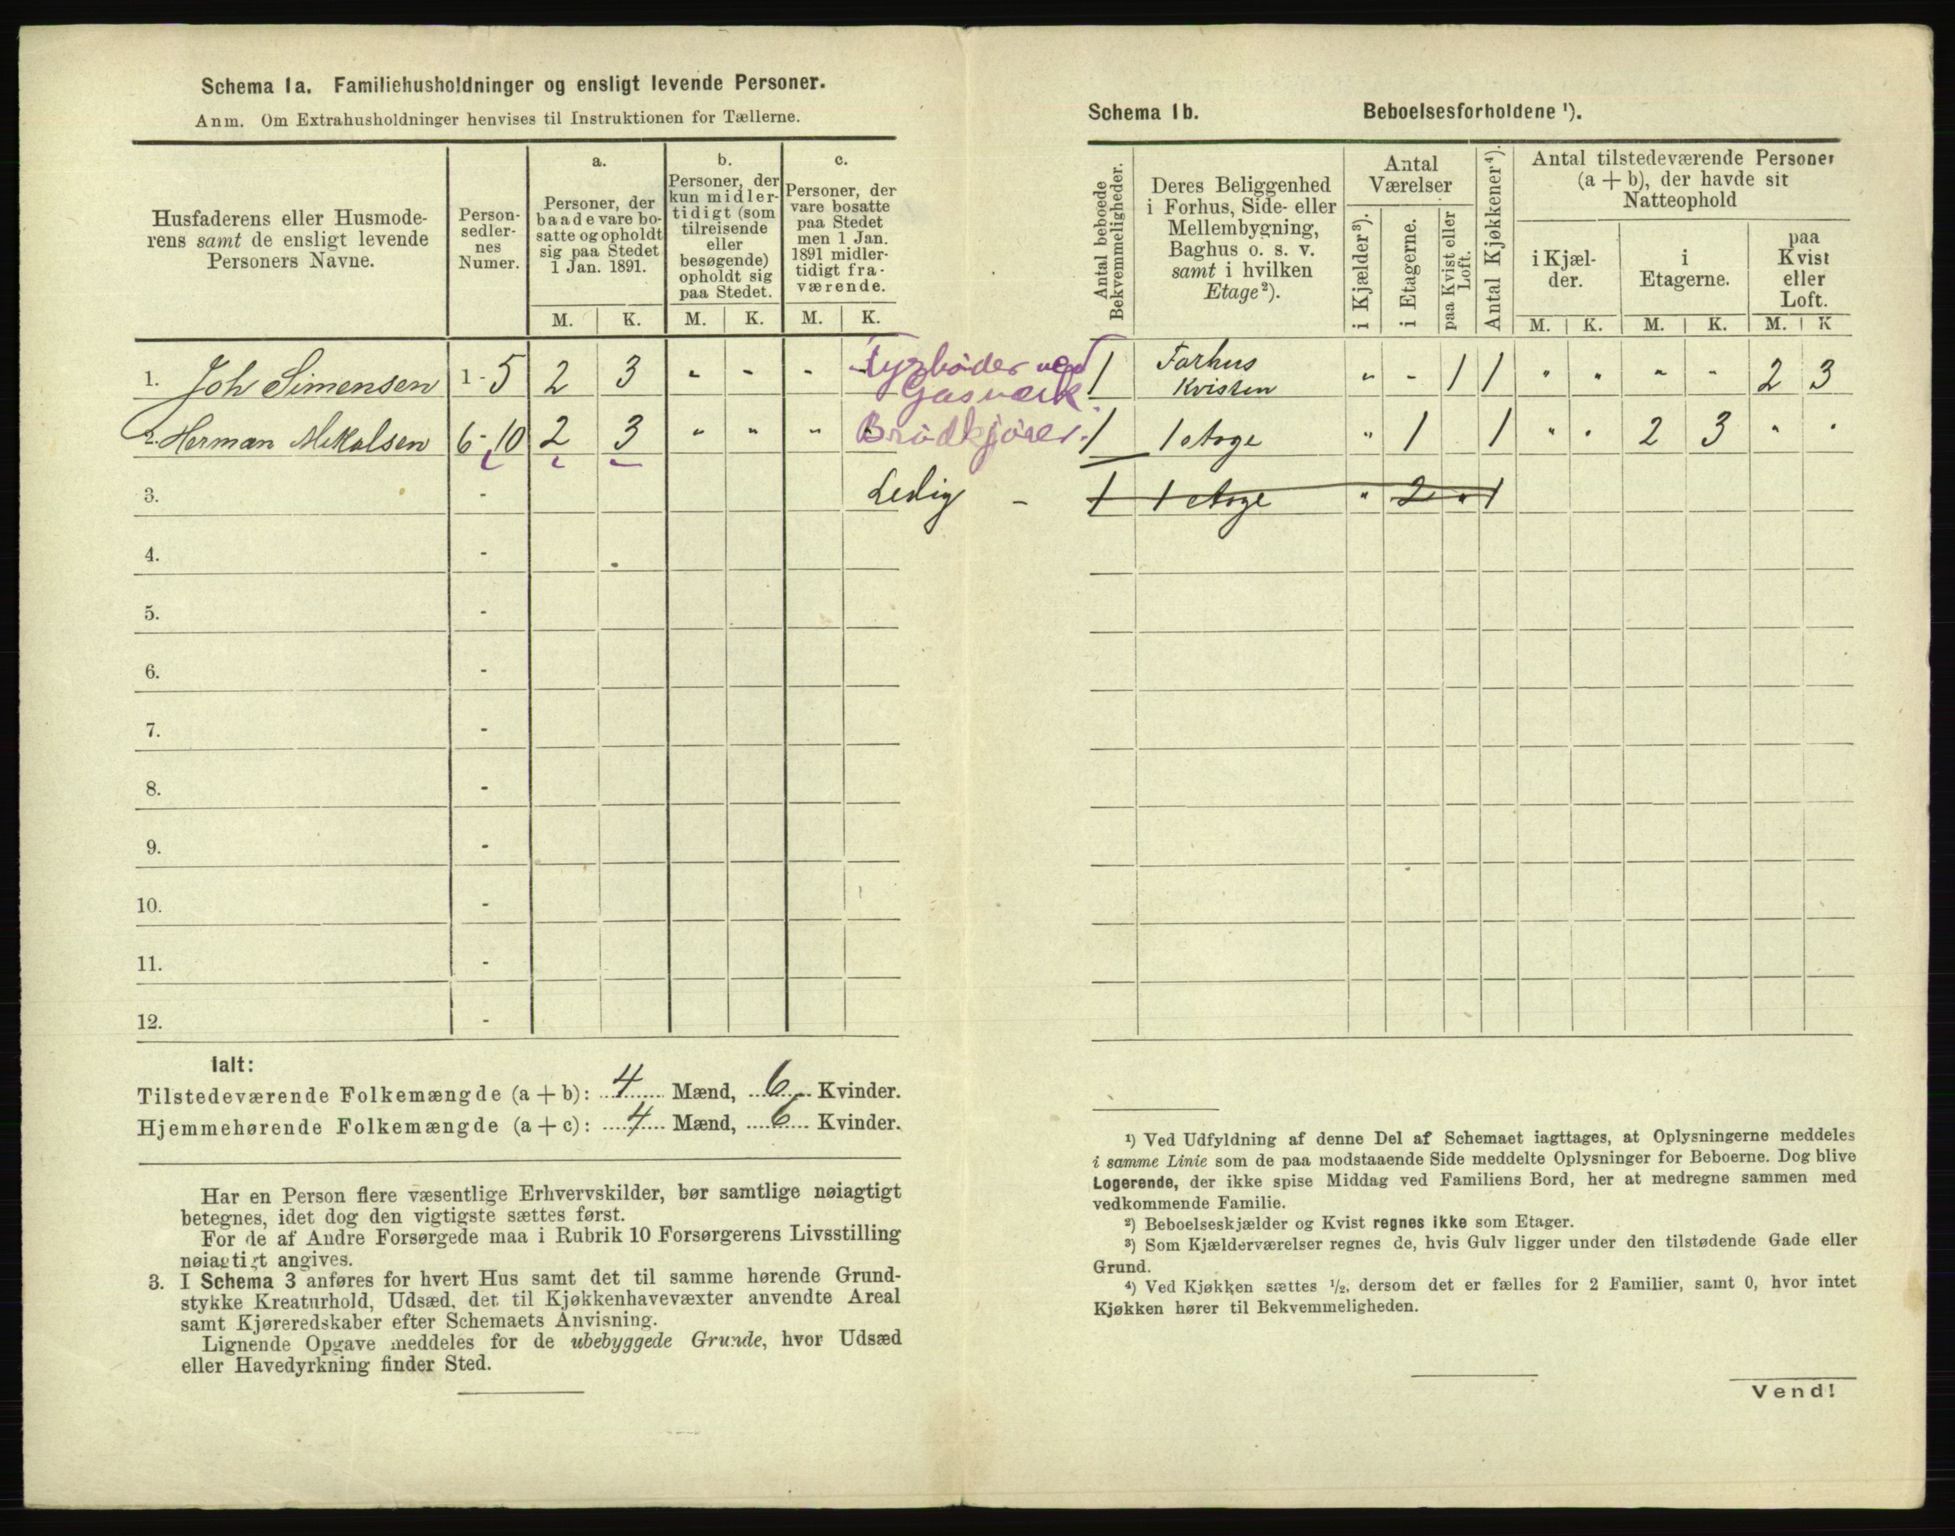 Schema 1a. Familiehusholdninger og ensligt levende Personer.
Anm. Om Extrahusholdninger henvises til Instruktionen for Tællerne.
Husfaderens eller Husmode-
rens samt de ensligt levende
Personers Navne.
Person-
sedler-
nes
Numer.
a.
Personer, der
baade vare bo-
satte og opholdt
sig paa Stedet
1 Jan. 1891.
b.
Personer, der
kun midler-
tidigt (som
tilreisende
eller
besøgende)
opholdt sig
paa Stedet.
c.
Personer, der
vare bosatte
paa Stedet
men 1 Jan.
1891 midler-
tidigt fra-
værende.
M. K. M. K. M. K.
1. Joh Simensen 1-5 2 3 " - - - Fyrbøder ved
Gasværk.
2. Herman Mikalsen 6-10 2 3 " " " " Brødkjører.
3. - Ledig -
4. -
5. -
6. -
7. -
8. -
9. -
10. -
11. -
12. -
Ialt:
Tilstedeværende Folkemængde (a + b): 4 Mænd, 6 Kvinder.
Hjemmehørende Folkemængde (a + c): 4 Mænd, 6 Kvinder.
Har en Person flere væsentlige Erhvervskilder, bør samtlige nøiagtigt
betegnes, idet dog den vigtigste sættes først.
For de af Andre Forsørgede maa i Rubrik 10 Forsørgerens Livsstilling
nøiagtigt angives.
3. I Schema 3 anføres for hvert Hus samt det til samme hørende Grund-
stykke Kreaturhold, Udsæd, det til Kjøkkenhavevæxter anvendte Areal
samt Kjøreredskaber efter Schemaets Anvisning.
Lignende Opgave meddeles for de ubebyggede Grunde, hvor Udsæd
eller Havedyrkning finder Sted.
Schema 1b. Beboelsesforholdene ¹).
Antal beboede
Bekvemmeligheder.
Deres Beliggenhed
i Forhus, Side- eller
Mellembygning,
Baghus o. s. v.
samt i hvilken
Etage²).
Antal
Værelser
i Kjælder³).
i Etagerne.
paa Kvist eller
Loft.
Antal Kjøkkener⁴).
Antal tilstedeværende Personer
(a + b), der havde sit
Natteophold
i Kjæl-
der.
i
Etagerne.
paa
Kvist
eller
Loft.
M. K. M. K. M. K
1 Forhus
Kvisten " - 1 1 " " " - 2 3
1 1 Etage " 1 1 " " 2 3 " "
1 1 Etage " 2 " 1
¹) Ved Udfyldning af denne Del af Schemaet iagttages, at Oplysningerne meddeles
i samme Linie som de paa modstaaende Side meddelte Oplysninger for Beboerne. Dog blive
Logerende, der ikke spise Middag ved Familiens Bord, her at medregne sammen med
vedkommende Familie.
²) Beboelseskjælder og Kvist regnes ikke som Etager.
³) Som Kjælderværelser regnes de, hvis Gulv ligger under den tilstødende Gade eller
Grund.
⁴) Ved Kjøkken sættes ½, dersom det er fælles for 2 Familier, samt 0, hvor intet
Kjøkken hører til Bekvemmeligheden.
Vend!